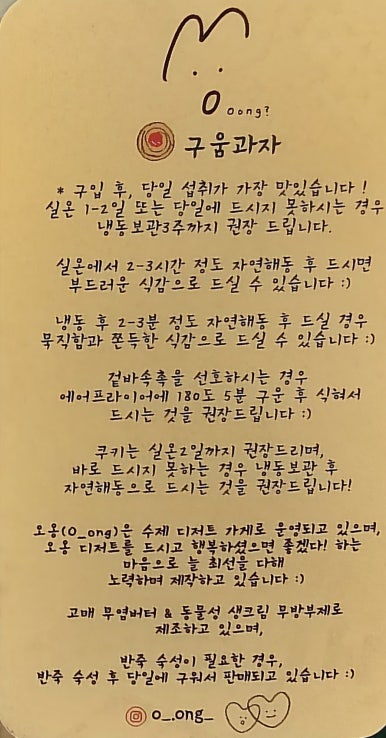 Oong?
구움과자
* 구입 후, 당일 섭취가 가장 맛있습니다!
실온 1-2일 또는 당일에 드시지 못하시는 경우
냉동보관3주까지 권장 드립니다.
실온에서 2-3시간 정도 자연해동 후 드시면
부드러운 식감으로 드실 수 있습니다 :)
냉동 후 2-3분 정도 자연해동 후 드실 경우
묵직함과 쫀득한 식감으로 드실 수 있습니다 :)
겉바속촉을 선호하시는 경우
에어프라이어에 180도 5분 구운 후 식혀서
드시는 것을 권장드립니다 :)
쿠키는 실온2일까지 권장드리며,
바로 드시지 못하는 경우 냉동보관 후
자연해동으로 드시는 것을 권장드립니다!
오옹(O_ong)은 수제 디저트 가게로 운영되고 있으며,
오옹 디저트를 드시고 행복하셨으면 좋겠다! 하는
마음으로 늘 최선을 다해
노력하며 제작하고 있습니다 :)
고매 무염버터 & 동물성 생크림 무방부제로
제조하고 있으며,
반죽 숙성이 필요한 경우,
반죽 숙성 후 당일에 구워서 판매되고 있습니다 :)
o_.ong_